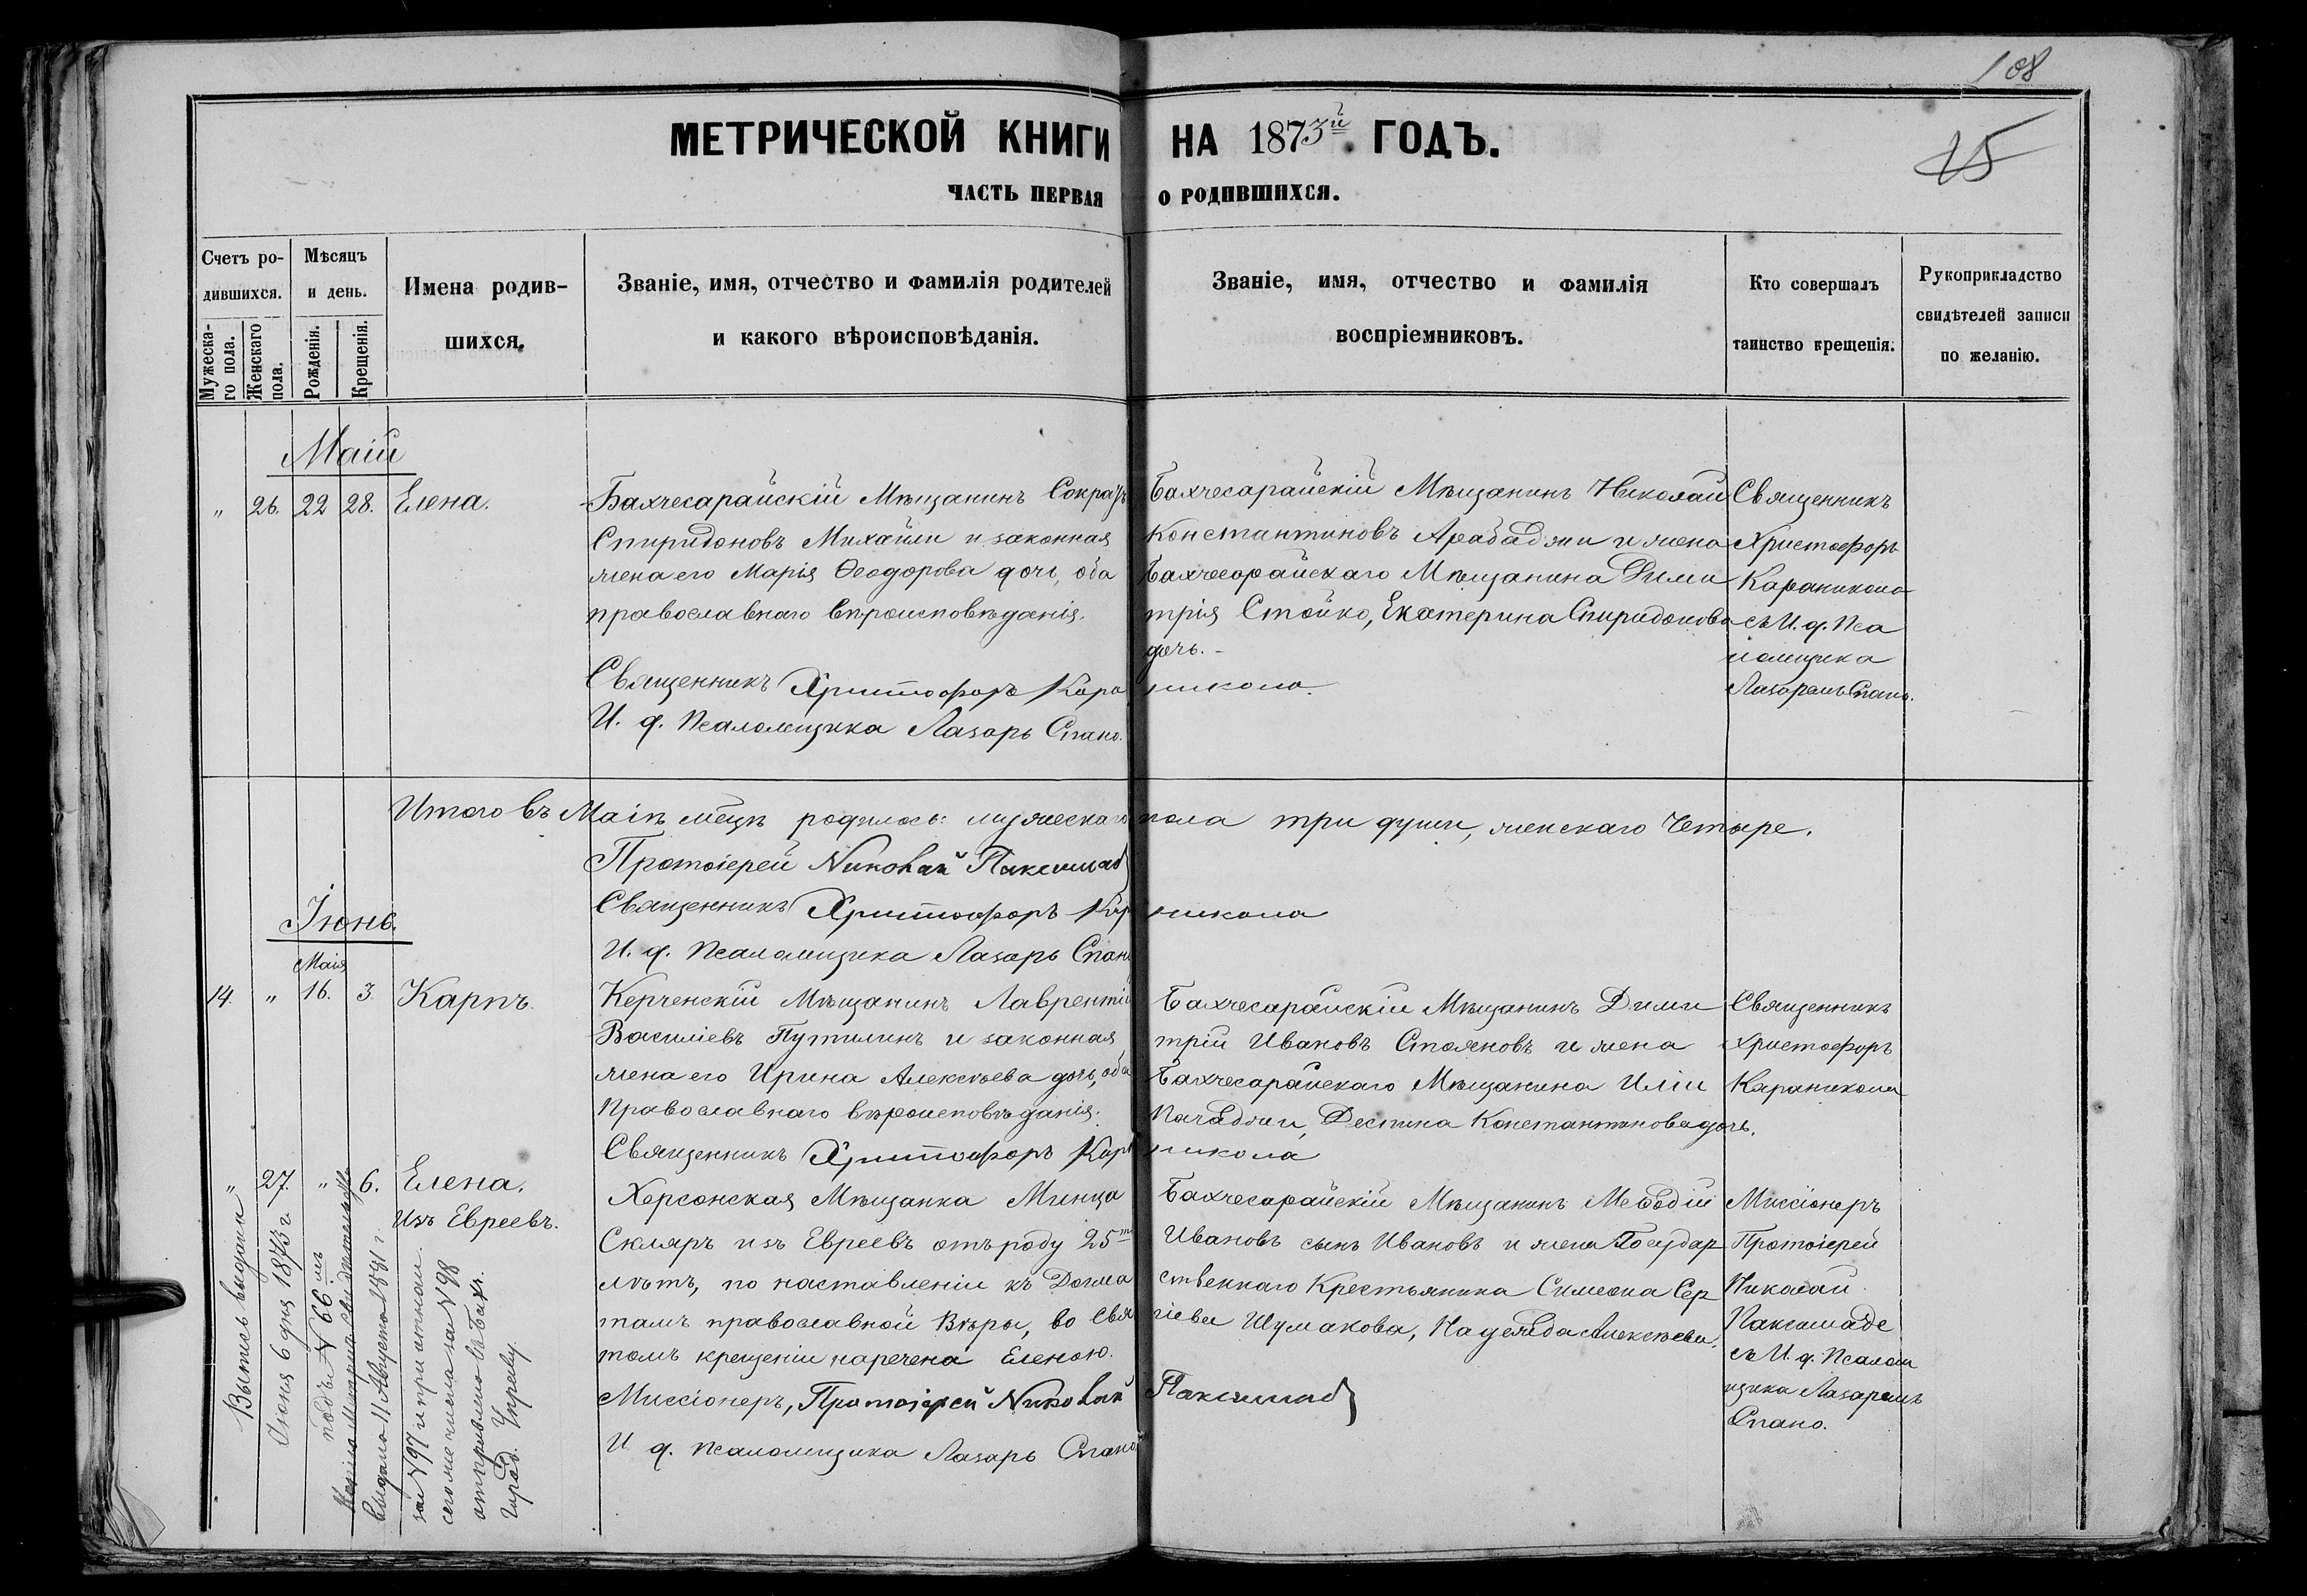 108
15
МЕТРИЧЕСКОЙ КНИГИ НА 1873й ГОДЪ.
ЧАСТЬ ПЕРВАЯ О РОДИВШИХСЯ.
Счетъ ро-
дившихся.
Мужеска-
го пола.
Женскаго
пола.
Мѣсяцъ
и день.
Рожденія.
Крещенія.
Имена родив-
шихся.
Званіе, имя, отчество и фамилія родителей
и какого вѣроисповѣданія.
Званіе, имя, отчество и фамилія
воспріемниковъ.
Кто совершалъ
таинство крещенія.
Рукоприкладство
свидѣтелей записи
по желанію.
Маій
" 26. 22 28. Елена.
Бахчесарайскій Мѣщанинъ
Спиридоновъ Михайли и законная
жена его Марія Ѳеодорова дочь, оба
православнаго вѣроисповѣданія.
Священникъ Христофоръ Караникола.
И. д. Псаломщика Лазарь Спано.
Бахчесарайскій Мѣщанинъ Николай
Константиновъ Арабаджи и жена
Бахчесарайскаго Мѣщанина Дими
трія Стойко, Екатерина Спиридонова
дочь.-
Священникъ
Христофоръ
Караникола
съ И. д. Пса
ломщика
Лазаремъ Спано.
Итого въ Маіѣ мѣцѣ родилось: мужескаго пола три души, женскаго Четыре.
Протоіерей Николай Паксимад
Священникъ Христофоръ Караникола
И. д. Псаломщика Лазарь Спано
Іюнь.
Маія
14. " 16. 3. Карпъ.
Керченскій Мѣщанинъ Лаврентій
Василіевъ Путилинъ и законная
жена его Ирина Алексѣева дочь, оба
Православнаго вѣроисповѣданія.
Священникъ Христофоръ Караникола
Бахчесарайскій Мѣщанинъ Дими
трій Ивановъ Стояновъ и жена
Бахчесарайскаго Мѣщанина Иліи
Пачаджи, Деспина Константинова дочь.
Священникъ
Христофоръ
Караникола
" 27. " 6. Елена.
Изъ Евреевъ.
Херсонская Мѣщанка Минца
Скляръ изъ Евреевъ отъ роду 25ти
лѣтъ, по наставленіи къ Догма
тамъ православной Вѣры, во Свя
томъ крещеніи наречена Еленою.
Миссіонеръ, Протоіерей Николай Паксимад
И. д. Псаломщика Лазарь Спано
Бахчесарайскій Мѣщанинъ Меѳодій
Ивановъ сынъ Ивановъ и жена Государ
ственнаго Крестьянина Симеона Сер
гіева Шумакова, Надежда Алексѣева.
Миссіонеръ
Протоіерей
Николай
Паксимаде
съ И. д. Псалом
щика Лазаремъ
Спано.
Выпись выдана
Іюня 6 дня 1873 г.
подъ N 66мъ
выдана 11 Августа
за N 97 и при отнош.
сего же числа за N 98
отправлено въ Бахч.
Город. Управу.